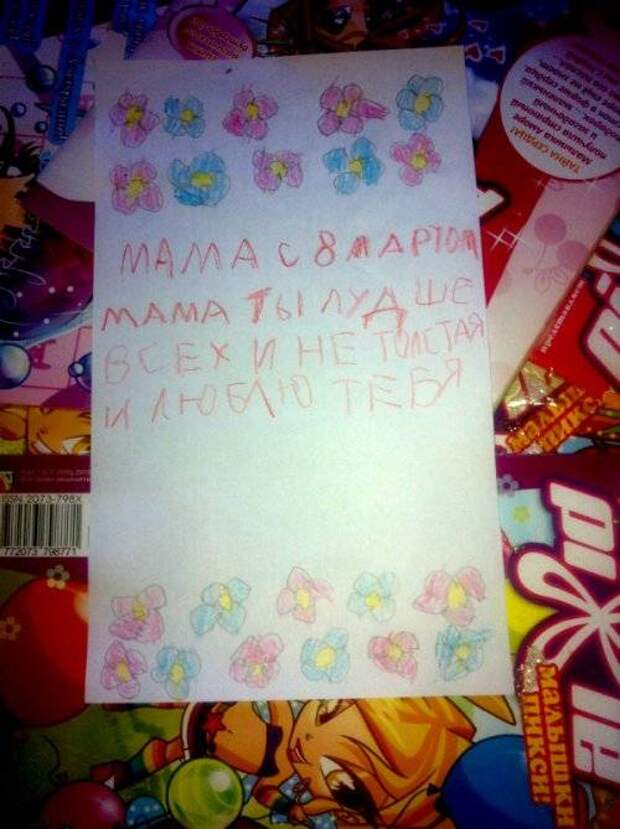 МАМА С 8 МАРТОМ
МАМА ТЫ ЛУДШЕ
ВСЕХ И НЕ ТОЛСТАЯ
И ЛЮБЛЮ ТЕБЯ
ТАЙНА СЕРДЦА!
ISSN 2073-798X
PIXIE
МАЛЫШКИ
ПИКСИ!